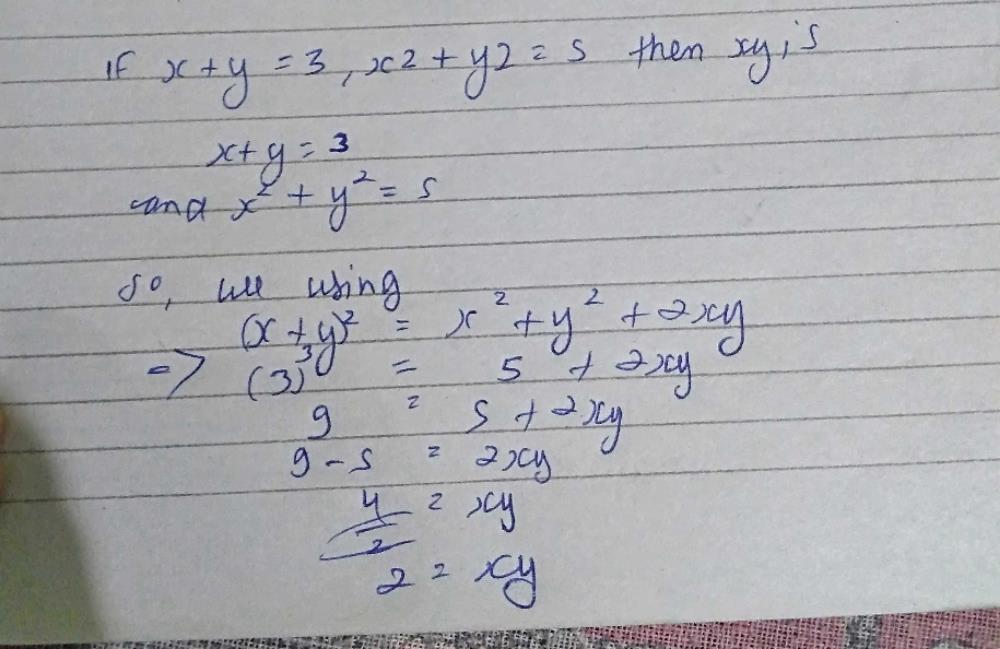 If x+y=3, x2+y2=5 then xy is
x+y=3
and x²+y²=5
so, we using
(x+y)² = x²+y²+2xy
=> (3)³ = 5 + 2xy
9 = 5+2xy
9-5 = 2xy
4/2 = xy
2 = xy